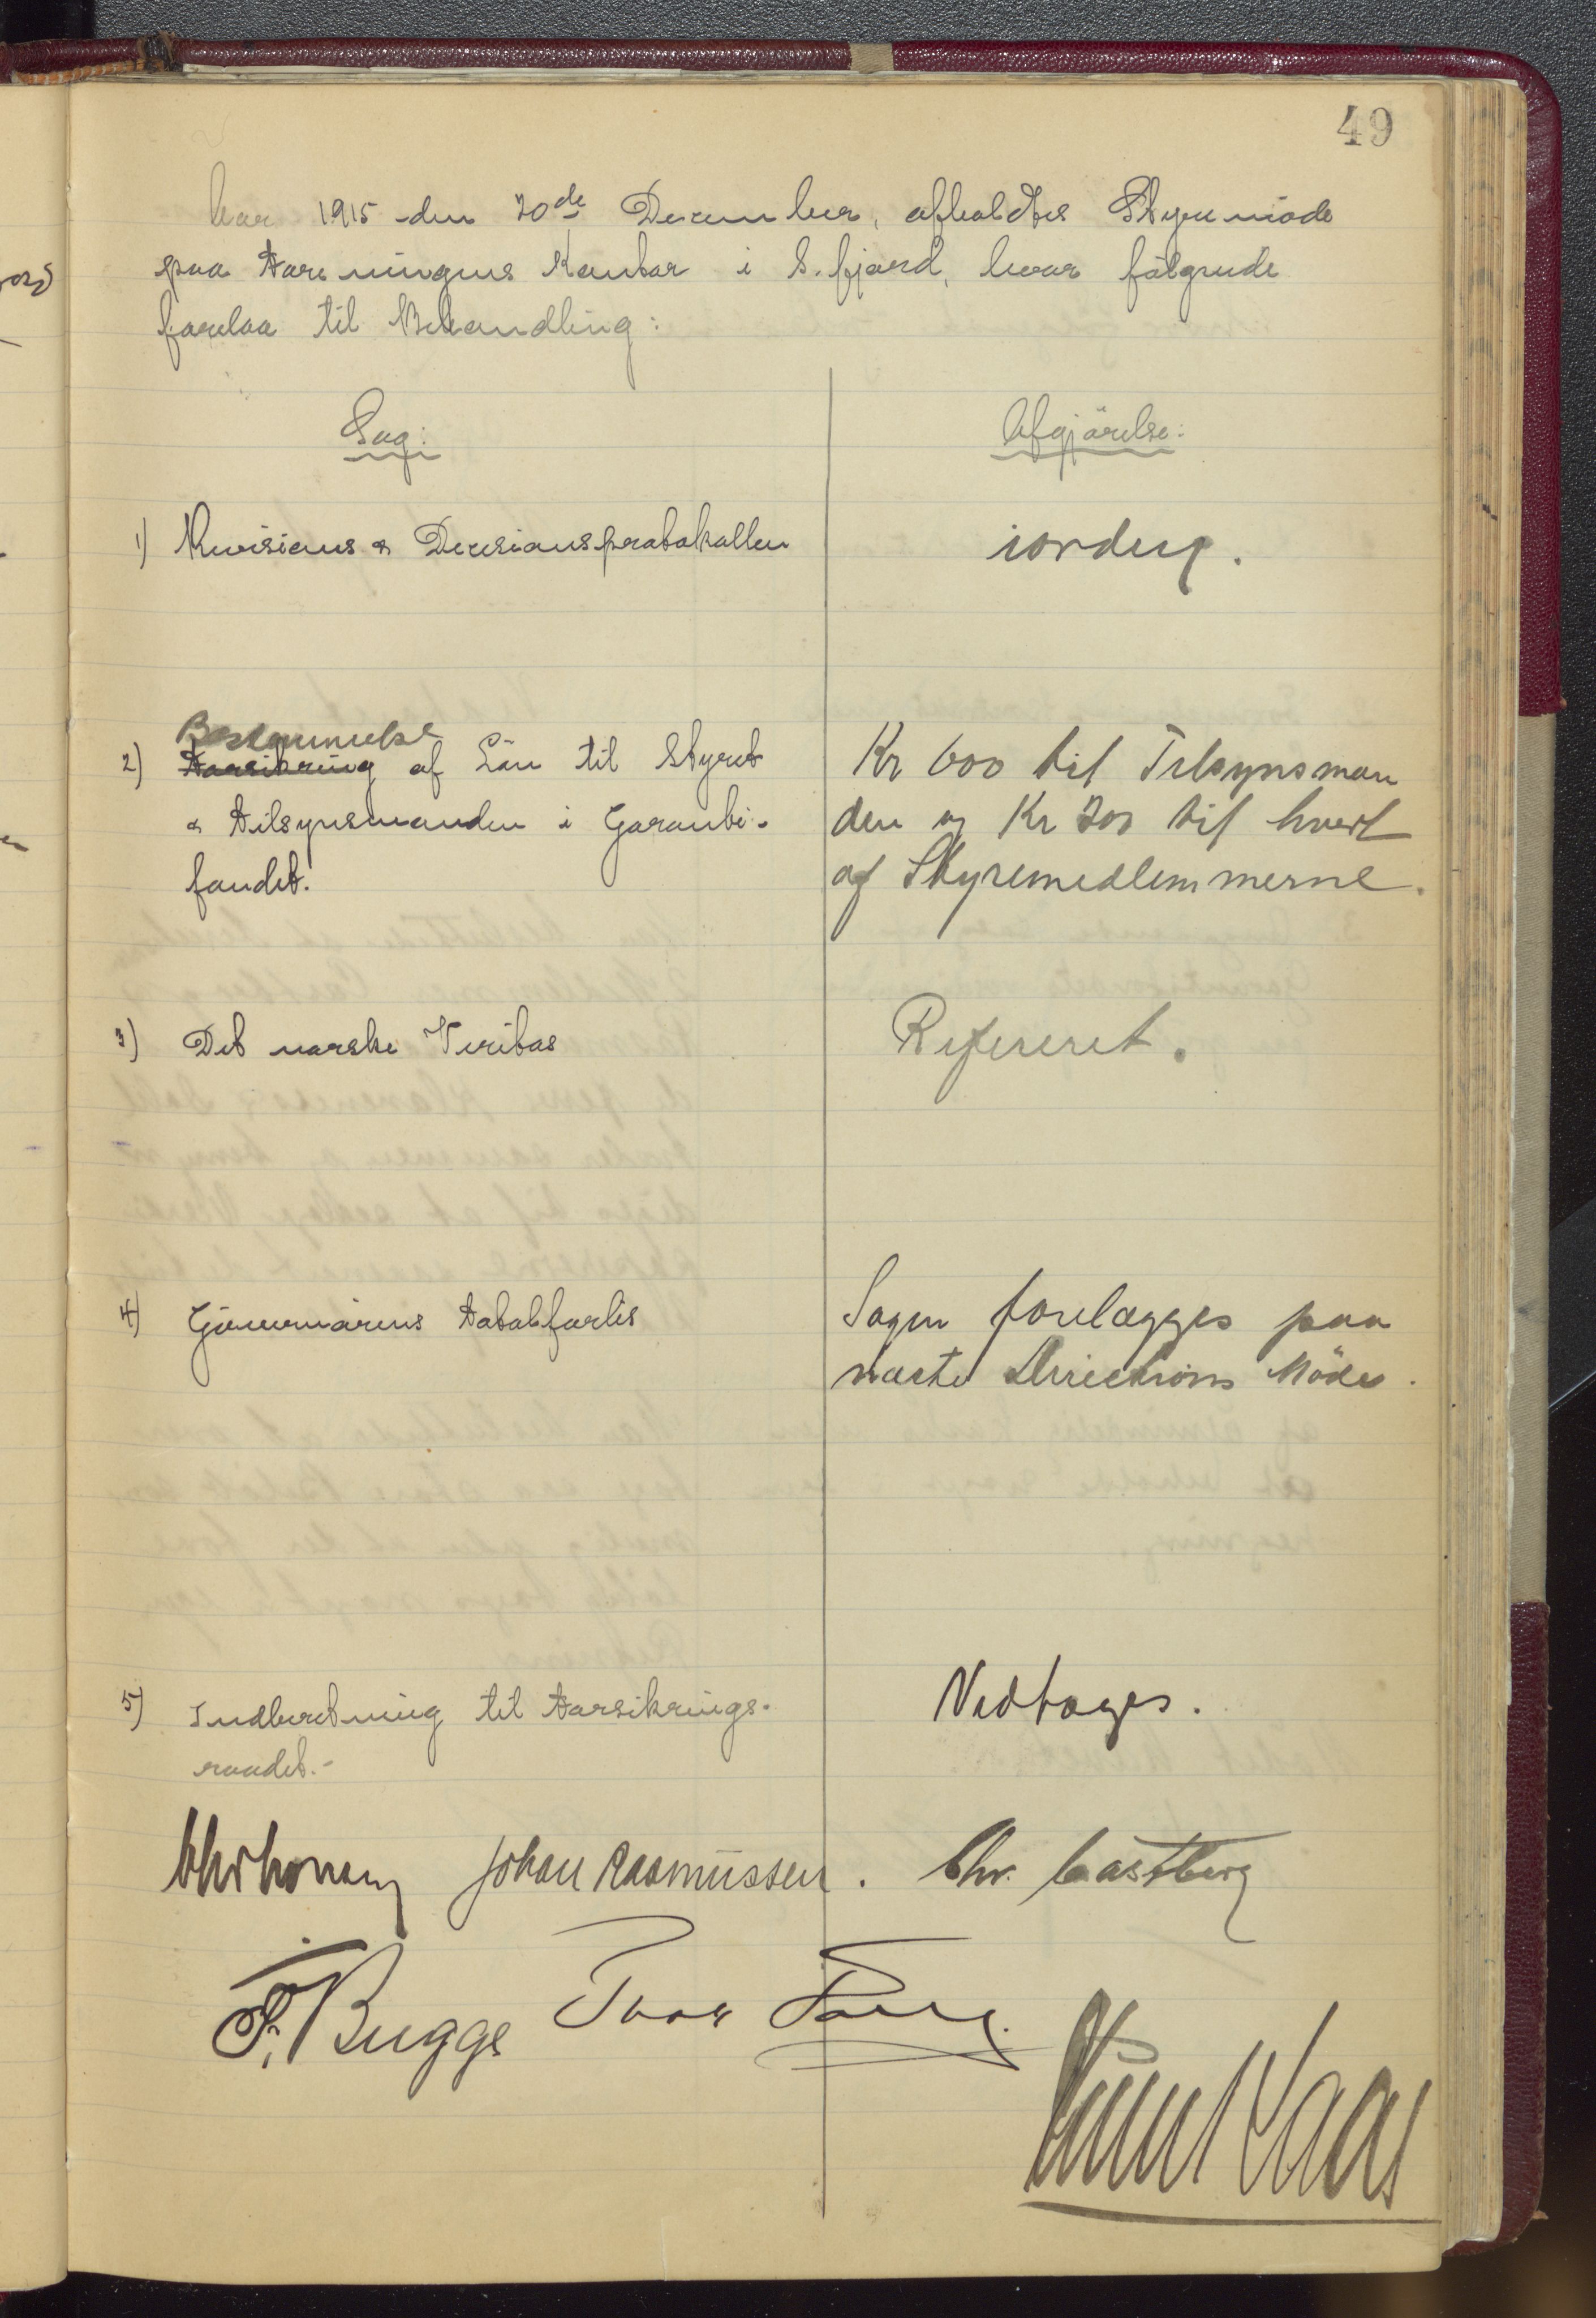 49
Aar 1915 den 20de December, afholdtes Styremøde
paa Foreningens Kontor i S.fjord, hvor følgende
forelaa til Behandling:
Sag:
Afgjörelse:
1) Revisions & Decisionsprotokollen
iorden.
2) Bestemmelse
Forsikring af Løn til Styret
& Tilsynsmanden i Garanti-
fondet.
Kr 600 til Tilsynsman
den og Kr 200 til hvert
af Styremedlemmerne.
3) Det norske Veritas
Refereret.
4) "Gimmerens" Totalforlis
Sagen forelægges paa
næste Directions Möde.
5) Indberetning til Forsikrings-
raadet.-
Vedtages.
Johan Rasmussen. Chr. Castberg
F. Bugge Thor